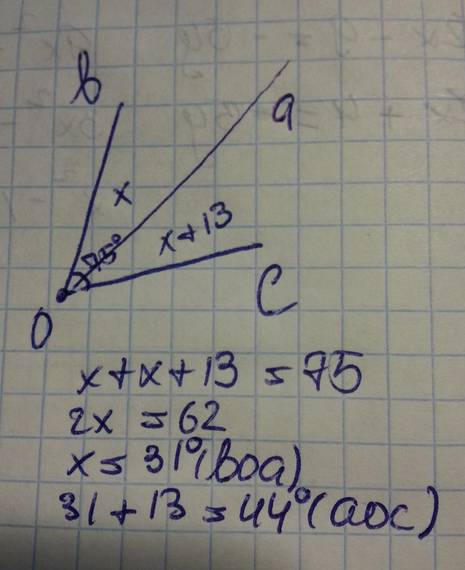 b
a
x
75°
x+13
C
O
x+x+13=75
2x=62
x=31°(boa)
31+13=44°(aoc)